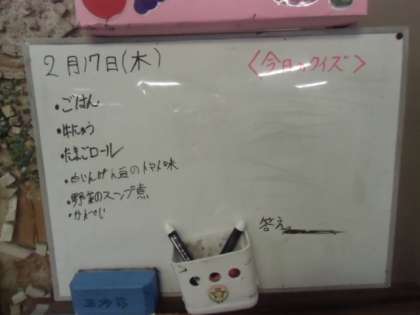 2月17日(木)
・ごはん
・牛にゅう
・たまごロール
・白いんげん豆のトマト味
・野菜のスープ煮
<今日のクイズ>
答え